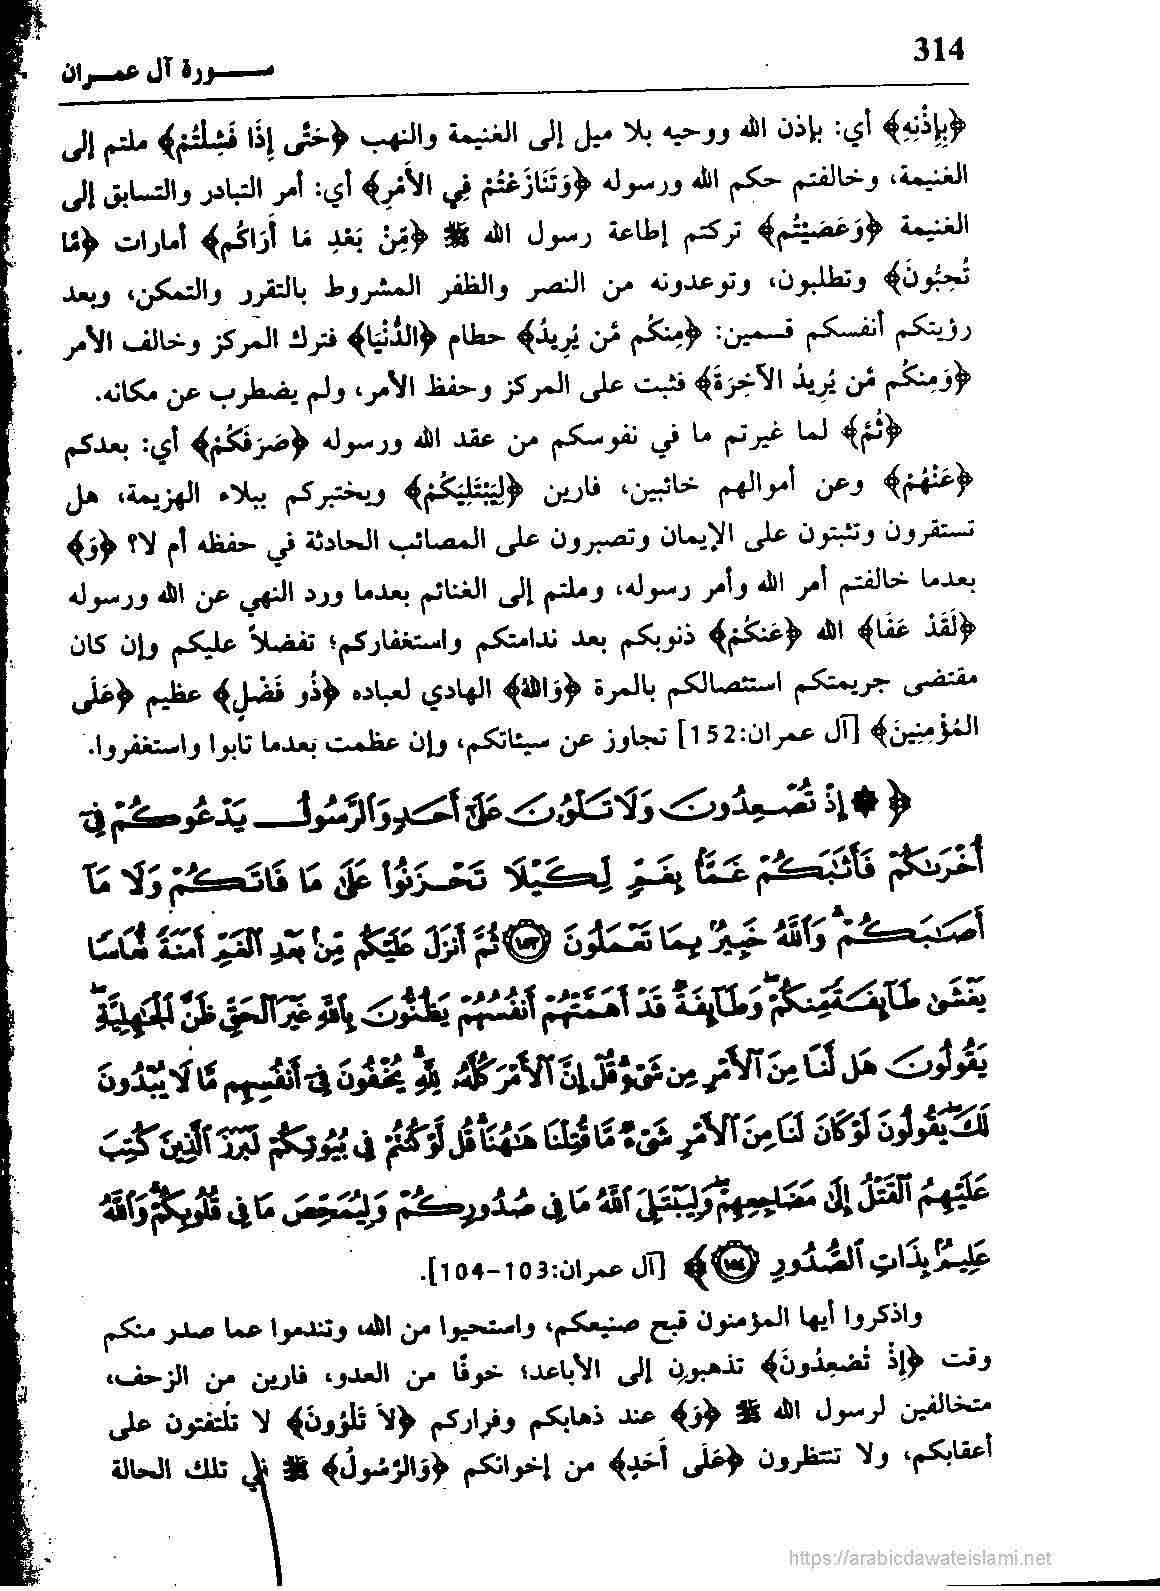 314
سورة آل عمران
﴿بِإِذْنِهِ﴾ أي: بإذن الله ووحيه بلا ميل إلى الغنيمة والنهب ﴿حَتَّى إِذَا فَشِلْتُمْ﴾ ملتم إلى
الغنيمة، وخالفتم حكم الله ورسوله ﴿وَتَنَازَعْتُمْ فِي الأَمْرِ﴾ أي: أمر التبادر والتسابق إلى
الغنيمة ﴿وَعَصَيْتُم﴾ تركتم إطاعة رسول الله ﷺ ﴿مِّنْ بَعْدِ مَا أَرَاكُم﴾ أمارات ﴿مَّا
تُحِبُّونَ﴾ وتطلبون، وتوعدونه من النصر والظفر المشروط بالتقرر والتمكن، وبعد
رؤيتكم أنفسكم قسمين: ﴿مِنكُم مَّن يُرِيدُ﴾ حطام ﴿الدُّنْيَا﴾ فترك المركز وخالف الأمر
﴿وَمِنكُم مَّن يُرِيدُ الآخِرَةَ﴾ فثبت على المركز وحفظ الأمر، ولم يضطرب عن مكانه.
﴿ثُمَّ﴾ لما غيرتم ما في نفوسكم من عقد الله ورسوله ﴿صَرَفَكُمْ﴾ أي: بعدكم
﴿عَنْهُمْ﴾ وعن أموالهم خائبين، فارين ﴿لِيَبْتَلِيَكُمْ﴾ ويختبركم ببلاء الهزيمة، هل
تستقرون وتثبتون على الإيمان وتصبرون على المصائب الحادثة في حفظه أم لا؟ ﴿وَ﴾
بعدما خالفتم أمر الله وأمر رسوله، وملتم إلى الغنائم بعدما ورد النهي عن الله ورسوله
﴿لَقَدْ عَفَا﴾ الله ﴿عَنكُمْ﴾ ذنوبكم بعد ندامتكم واستغفاركم؛ تفضلاً عليكم وإن كان
مقتضى جريمتكم استئصالكم بالمرة ﴿وَاللهُ﴾ الهادي لعباده ﴿ذُو فَضْلٍ﴾ عظيم ﴿عَلَى
المُؤْمِنِينَ﴾ [آل عمران:152] تجاوز عن سيئاتكم، وإن عظمت بعدما تابوا واستغفروا.
﴿ ۞ إِذْ تُصْعِدُونَ وَلَا تَلْوُونَ عَلَىٰٓ أَحَدٍ وَٱلرَّسُولُ يَدْعُوكُمْ فِىٓ
أُخْرَىٰكُمْ فَأَثَٰبَكُمْ غَمًّۢا بِغَمٍّ لِّكَيْلَا تَحْزَنُوا۟ عَلَىٰ مَا فَاتَكُمْ وَلَا مَآ
أَصَٰبَكُمْ ۗ وَٱللَّهُ خَبِيرٌۢ بِمَا تَعْمَلُونَ ١٥٣ ثُمَّ أَنزَلَ عَلَيْكُم مِّنۢ بَعْدِ ٱلْغَمِّ أَمَنَةً نُّعَاسًا
يَغْشَىٰ طَآئِفَةً مِّنكُمْ ۖ وَطَآئِفَةٌ قَدْ أَهَمَّتْهُمْ أَنفُسُهُمْ يَظُنُّونَ بِٱللَّهِ غَيْرَ ٱلْحَقِّ ظَنَّ ٱلْجَٰهِلِيَّةِ ۖ
يَقُولُونَ هَل لَّنَا مِنَ ٱلْأَمْرِ مِن شَىْءٍ ۗ قُلْ إِنَّ ٱلْأَمْرَ كُلَّهُۥ لِلَّهِ ۗ يُخْفُونَ فِىٓ أَنفُسِهِم مَّا لَا يُبْدُونَ
لَكَ ۖ يَقُولُونَ لَوْ كَانَ لَنَا مِنَ ٱلْأَمْرِ شَىْءٌ مَّا قُتِلْنَا هَٰهُنَا ۗ قُل لَّوْ كُنتُمْ فِى بُيُوتِكُمْ لَبَرَزَ ٱلَّذِينَ كُتِبَ
عَلَيْهِمُ ٱلْقَتْلُ إِلَىٰ مَضَاجِعِهِمْ ۖ وَلِيَبْتَلِىَ ٱللَّهُ مَا فِى صُدُورِكُمْ وَلِيُمَحِّصَ مَا فِى قُلُوبِكُمْ ۗ وَٱللَّهُ
عَلِيمٌۢ بِذَاتِ ٱلصُّدُورِ ١٥٤ ﴾ [آل عمران:103-104].
واذكروا أيها المؤمنون قبح صنيعكم، واستحيوا من الله، وتندموا عما صدر منكم
وقت ﴿إِذْ تُصْعِدُونَ﴾ تذهبون إلى الأباعد؛ خوفًا من العدو، فارين من الزحف،
متخالفين لرسول الله ﷺ ﴿وَ﴾ عند ذهابكم وفراركم ﴿لاَ تَلْوُونَ﴾ لا تلتفتون على
أعقابكم، ولا تنتظرون ﴿عَلَى أَحَدٍ﴾ من إخوانكم ﴿وَالرَّسُولُ﴾ ﷺ في تلك الحالة
https://arabicdawateislami.net